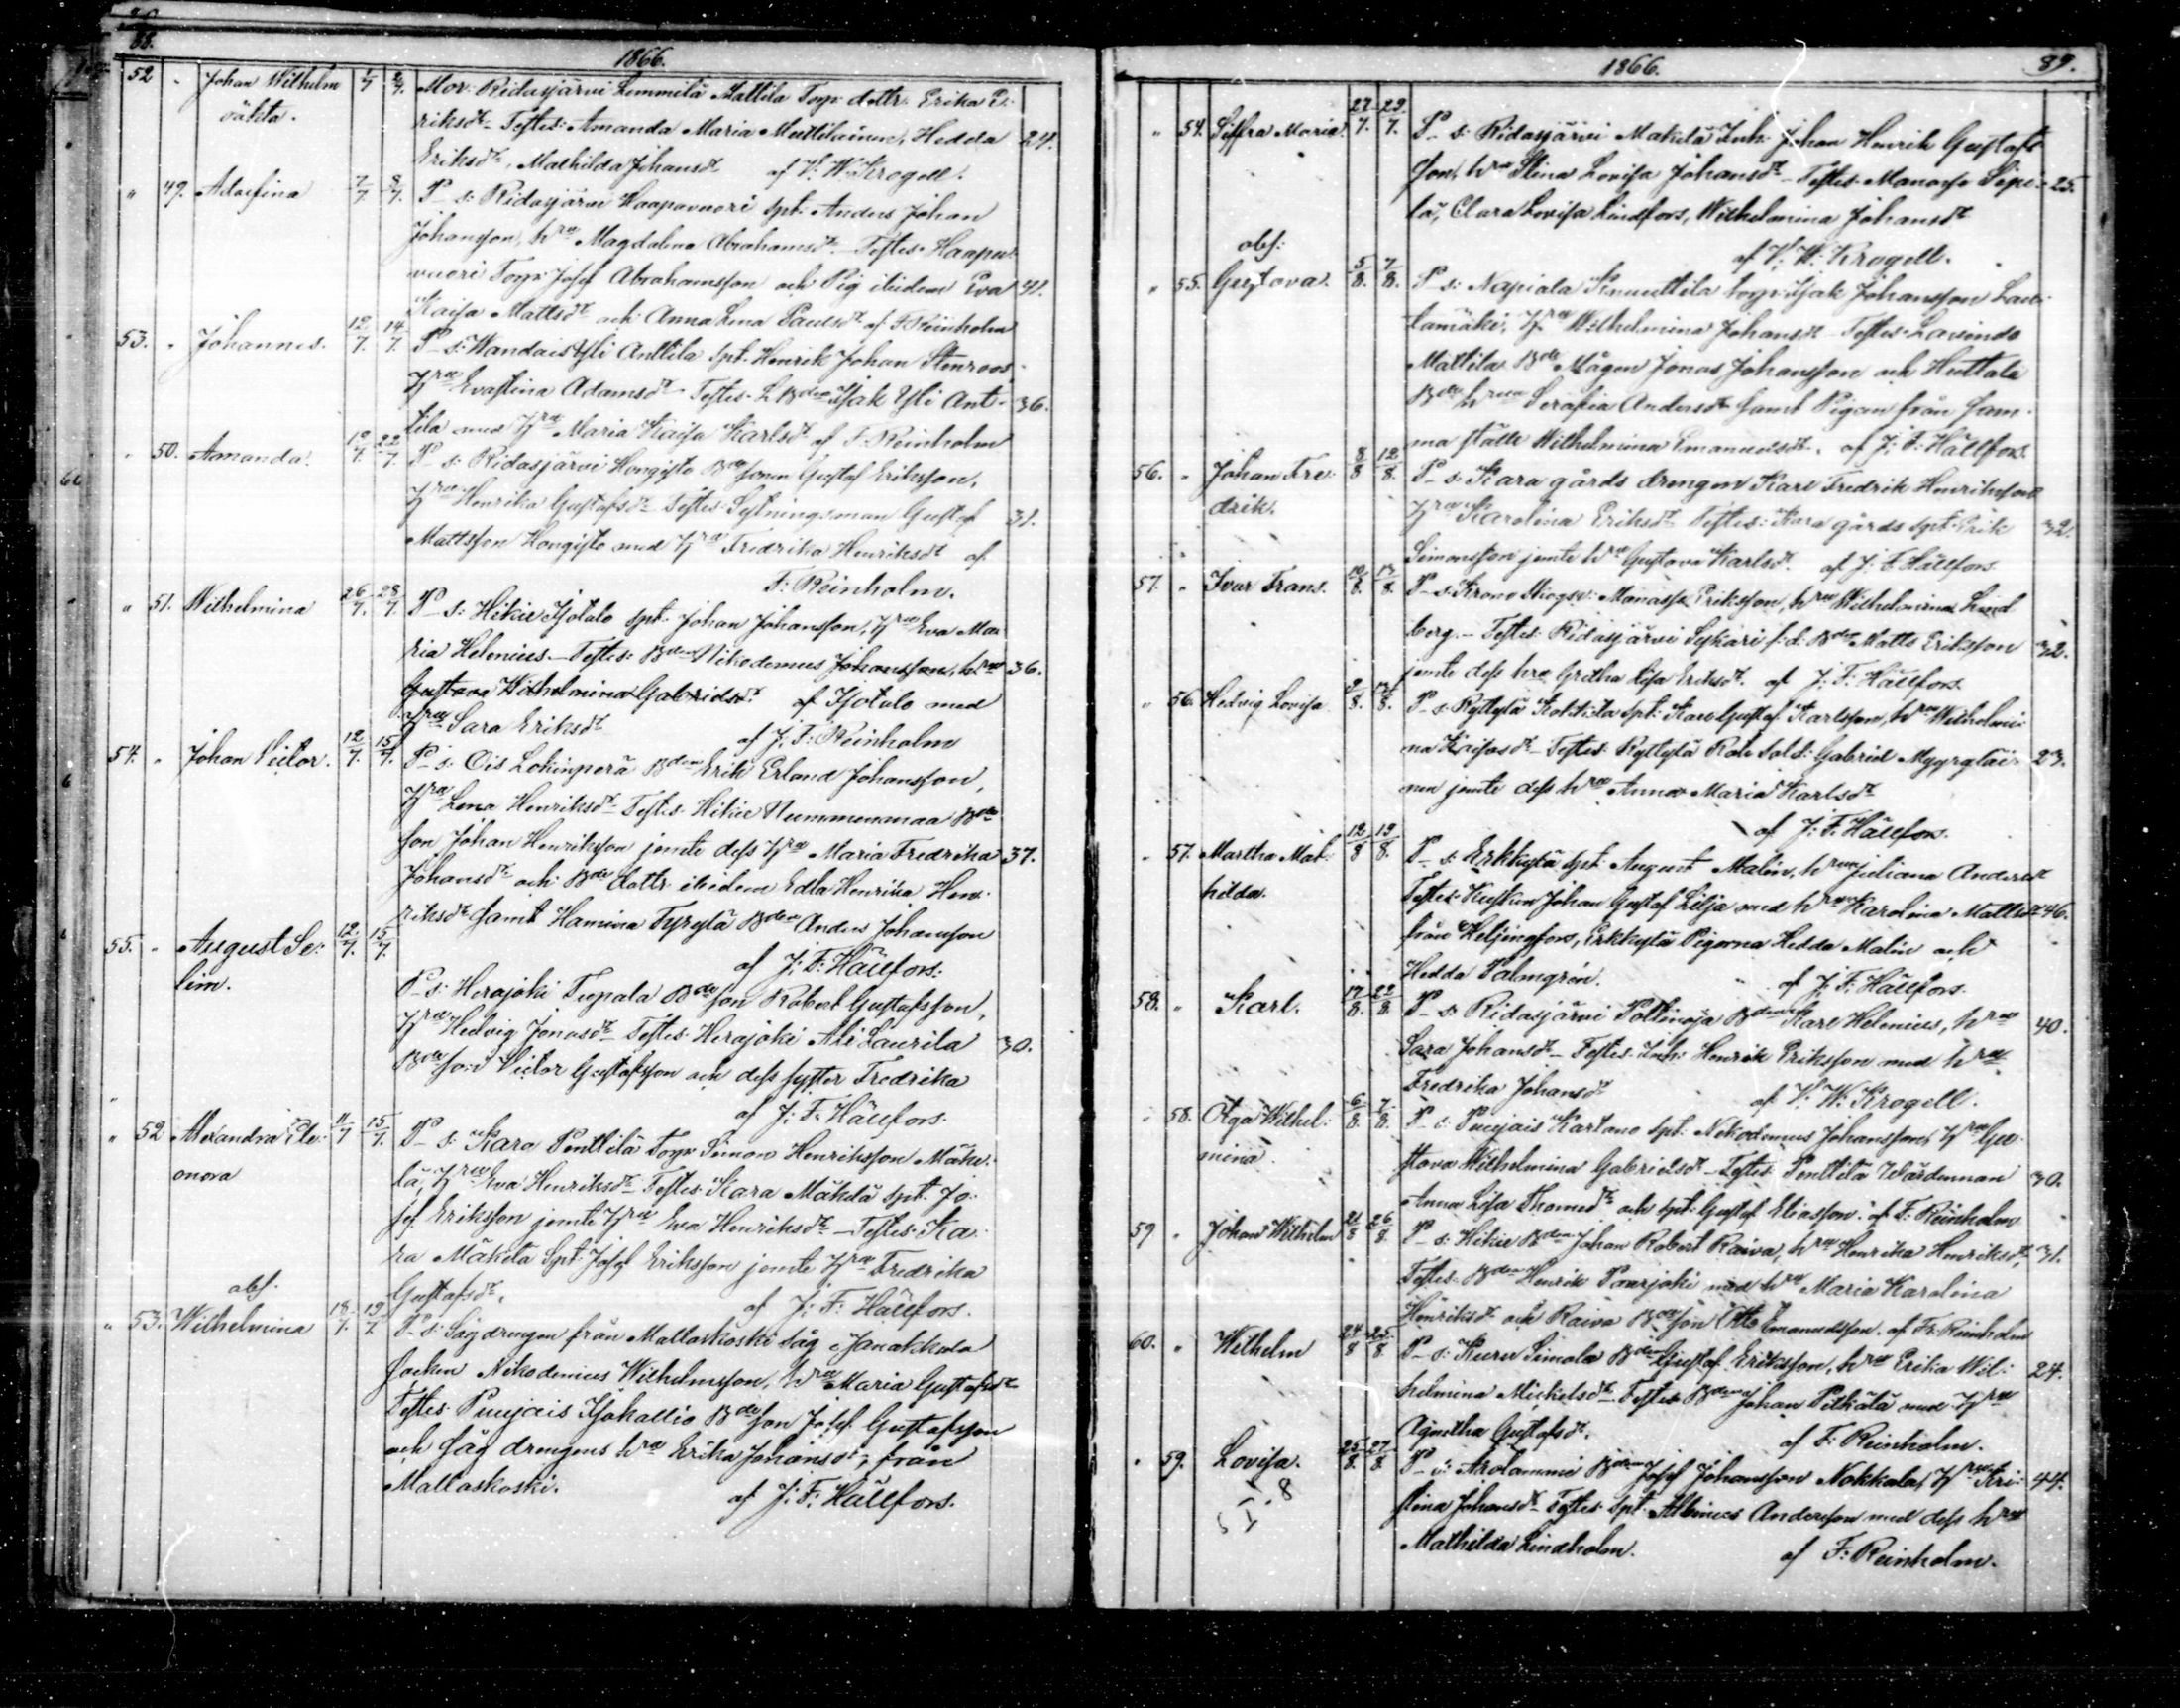 88.
1866.
52 " Johan Wilhelm 1/7 2/7. Mor: Ridasjärvi Lemmilä Mattila Torp: dottr. Erika E-
oäkta. riksdr Testes: Amanda Maria Mattilainen, Hedda 24.
Eriksdr, Mathilda Johansdr af V: W: Krogell.
" 49. Adolfina 7/7 8/7. P- s: Ridasjärvi Haapavuori spt: Anders Johan
Johansson, hru Magdalena Abrahamsdr Testes: Haapa-
vuori Torp: Josef Abrahamsson och Pig ibidem Eva 41.
Kaisa Mattsdr och Anna Lena Paulsdr af F: Reinholm
53. " Johannes. 12/7. 14/7. P- s: Wandais Yli Anttila spt. Henrik Johan Stenroos
Hru Evastina Adamsdr Testes: Bden Isak Yli Ant- 36.
tila med Hru Maria Kaisa Karlsdr af F: Reinholm
" 50. Amanda. 12/7. 22/7. P- s: Ridasjärvi Hongisto Bdesonen Gustaf Eriksson,
Hru Henrika Gustafsdr Testes: Sytningsman Gustaf 31.
Mattsson Hongisto med Hru Fredrika Henriksdr af
F: Reinholm.
" 51. Wilhelmina 26/7. 28/7. P- s: Hikie Isotalo spt: Johan Johansson, Hru Eva Ma-
ria Helenius - Testes: Bden Nikodemus Johansson, hru 36.
Gustava Wilhelmina Gabrielsdr af Isotalo med
Hru Sara Eriksdr af J: F: Reinholm
54. " Johan Victor. 12/7. 15/7. P- s: Ois Lokinperä Bden Erik Erland Johansson,
Hru Lena Henriksdr Testes: Hikie Nummenmaa Bde
son Johan Henriksson jemte dess Hru Maria Fredrika 37.
Johansdr och Bde dottr. ibidem Edla Henrika Hen-
riksdr samt Hamina Tyrylä Bden Anders Johansson
af J: F: Hällfors.
55. " August Se- 12/7. 15/7.
lim. P- s: Herajoki Tupala Bdeson Robert Gustafsson,
Hru Hedvig Jonasdr Testes: Herajoki Ali Laurila 30.
Bdeson Victor Gustafsson och dess syster Fredrika
af J: F: Hällfors.
" 52 Alexandra Ele- 11/7 15/7. P- s: Kara Penttilä Torp: Simon Henriksson Mäke-
onora lä, Hru Eva Henriksdr Testes: Kara Mäkelä spt. Jo-
sef Eriksson jemte Hru Eva Henriksdr - Testes: Ka-
ra Mäkelä Spt: Josef Eriksson jemte Hru Fredrika
abs. Gustafsdr, af J: F: Hällfors.
" 53. Wilhelmina 18/7. 19/7 P- s: Sågdrengen från Mallaskoski såg i Janakkala
socken Nikodemus Wilhelmsson, hru Maria Gustafsdr
Testes: Puujais Isokallio Bdeson Josef Gustafsson
och sågdrengens hru Erika Johansdr, från
Mallaskoski. af J: F: Hällfors.
1866. 89.
" 54. Siffra Maria. 27/7. 29/7. P- s: Ridasjärvi Makelä Inh: Johan Henrik Gustafs-
son, hru Stina Lovisa Johansdr - Testes: Manasse Sipi- 25.
lä, Clara Lovisa Lindfors, Wilhelmina Johansdr
abs: af V: W: Krogell.
" 55. Gustava. 5/8. 7/8. P- s: Napiala Knuuttila torp: Isak Johansson Lau-
tamäki, Hru Wilhelmina Johansdr - Testes:
Mattila Bde Mågen Jonas Johansson och Huttala
Bde hrun Serafia Andersdr samt Pigan från sam-
ma ställe Wilhelmina Emanuelsdr. af J: F: Hällfors.
56. " Johan Fre- 8/8 12/8. P- s: Kara gårds drengen Karl Fredrik Henriksson
drik. Hru Karolina Eriksdr Testes: Kara gårds spt: Erik 32.
Simonsson jemte hru Gustava Karlsdr. af J: F: Hällfors.
57. " Ivar Frans. 10/8. 13/8. P- s: Krono Skogsv: Manasse Eriksson, hru Wilhelmina Lind-
berg. - Testes: Ridasjärvi Sykäri f:d: Bden Matts Eriksson 32.
jemte dess hru Gretha Lisa Eriksdr. af J: F: Hällfors.
" 56. Hedvig Lovisa 9/8. 12/8. P- s: Ryttylä Kokkila spt: Karl Gustaf Karlsson, hru Wilhelmi-
na Kaisasdr - Testes: Ryttylä Rote sold: Gabriel Myyryläi- 23.
nen jemte dess hru Anna Maria Karlsdr
af J: F: Hällfors.
" 57. Martha Mat- 12/8 19/8. P- s: Erkkylä spt: August Malin, hrun Juliana Andersdr
hilda. Testes: Kusken Johan Gustaf Lilja med hru Karolina Mattsdr 46.
från Helsingfors, Erkkylä Pigorna Hedda Malin och
Hedda Palmgrén. af J: F: Hällfors.
58. " Karl. 17/8. 22/8. P- s: Ridasjärvi Bden Karl Helenius, hru 40.
Sara Johansdr - Testes: Inh: Henrik Eriksson med hru
Fredrika Johansdr af V: W: Krogell.
" 58. Olga Wilhel- 6/8. 7/8. P- s: Puujais Kartano spt: Nikodemus Johansson, Hru Gu-
mina. stava Wilhelmina Gabrielsdr - Testes: Penttilä Wärdinnan 30.
Anna Lisa Thomasdr och spt: Gustaf Eliasson. af F: Reinholm
59 " Johan Wilhelm 21/8 26/8. P- s: Hikie Bden Johan Robert Raiva, hru Henrika Henriksdr, 31.
Testes: Bden Henrik Paarjoki med hru Maria Karolina
Henriksdr och Raiva Bdeson Otto Emanuelsson. af F: Reinholm
60. " Wilhelm 24/8 25/8. P- s: Kuru Simola Bden Gustaf Eriksson, hru Erika Wil- 24.
helmina Mickelsdr - Testes: Bden Johan Pitkälä med Hru
Agnetha Gustafsdr. af F: Reinholm.
" 59. Lovisa. 25/8. 27/8. P- s: Arolammi Bden Josef Johansson Nokkala, Hru Kri- 44.
stina Johansdr - Testes: spt: Albinus Andersson med dess hru
Mathilda Lindholm. af F: Reinholm.